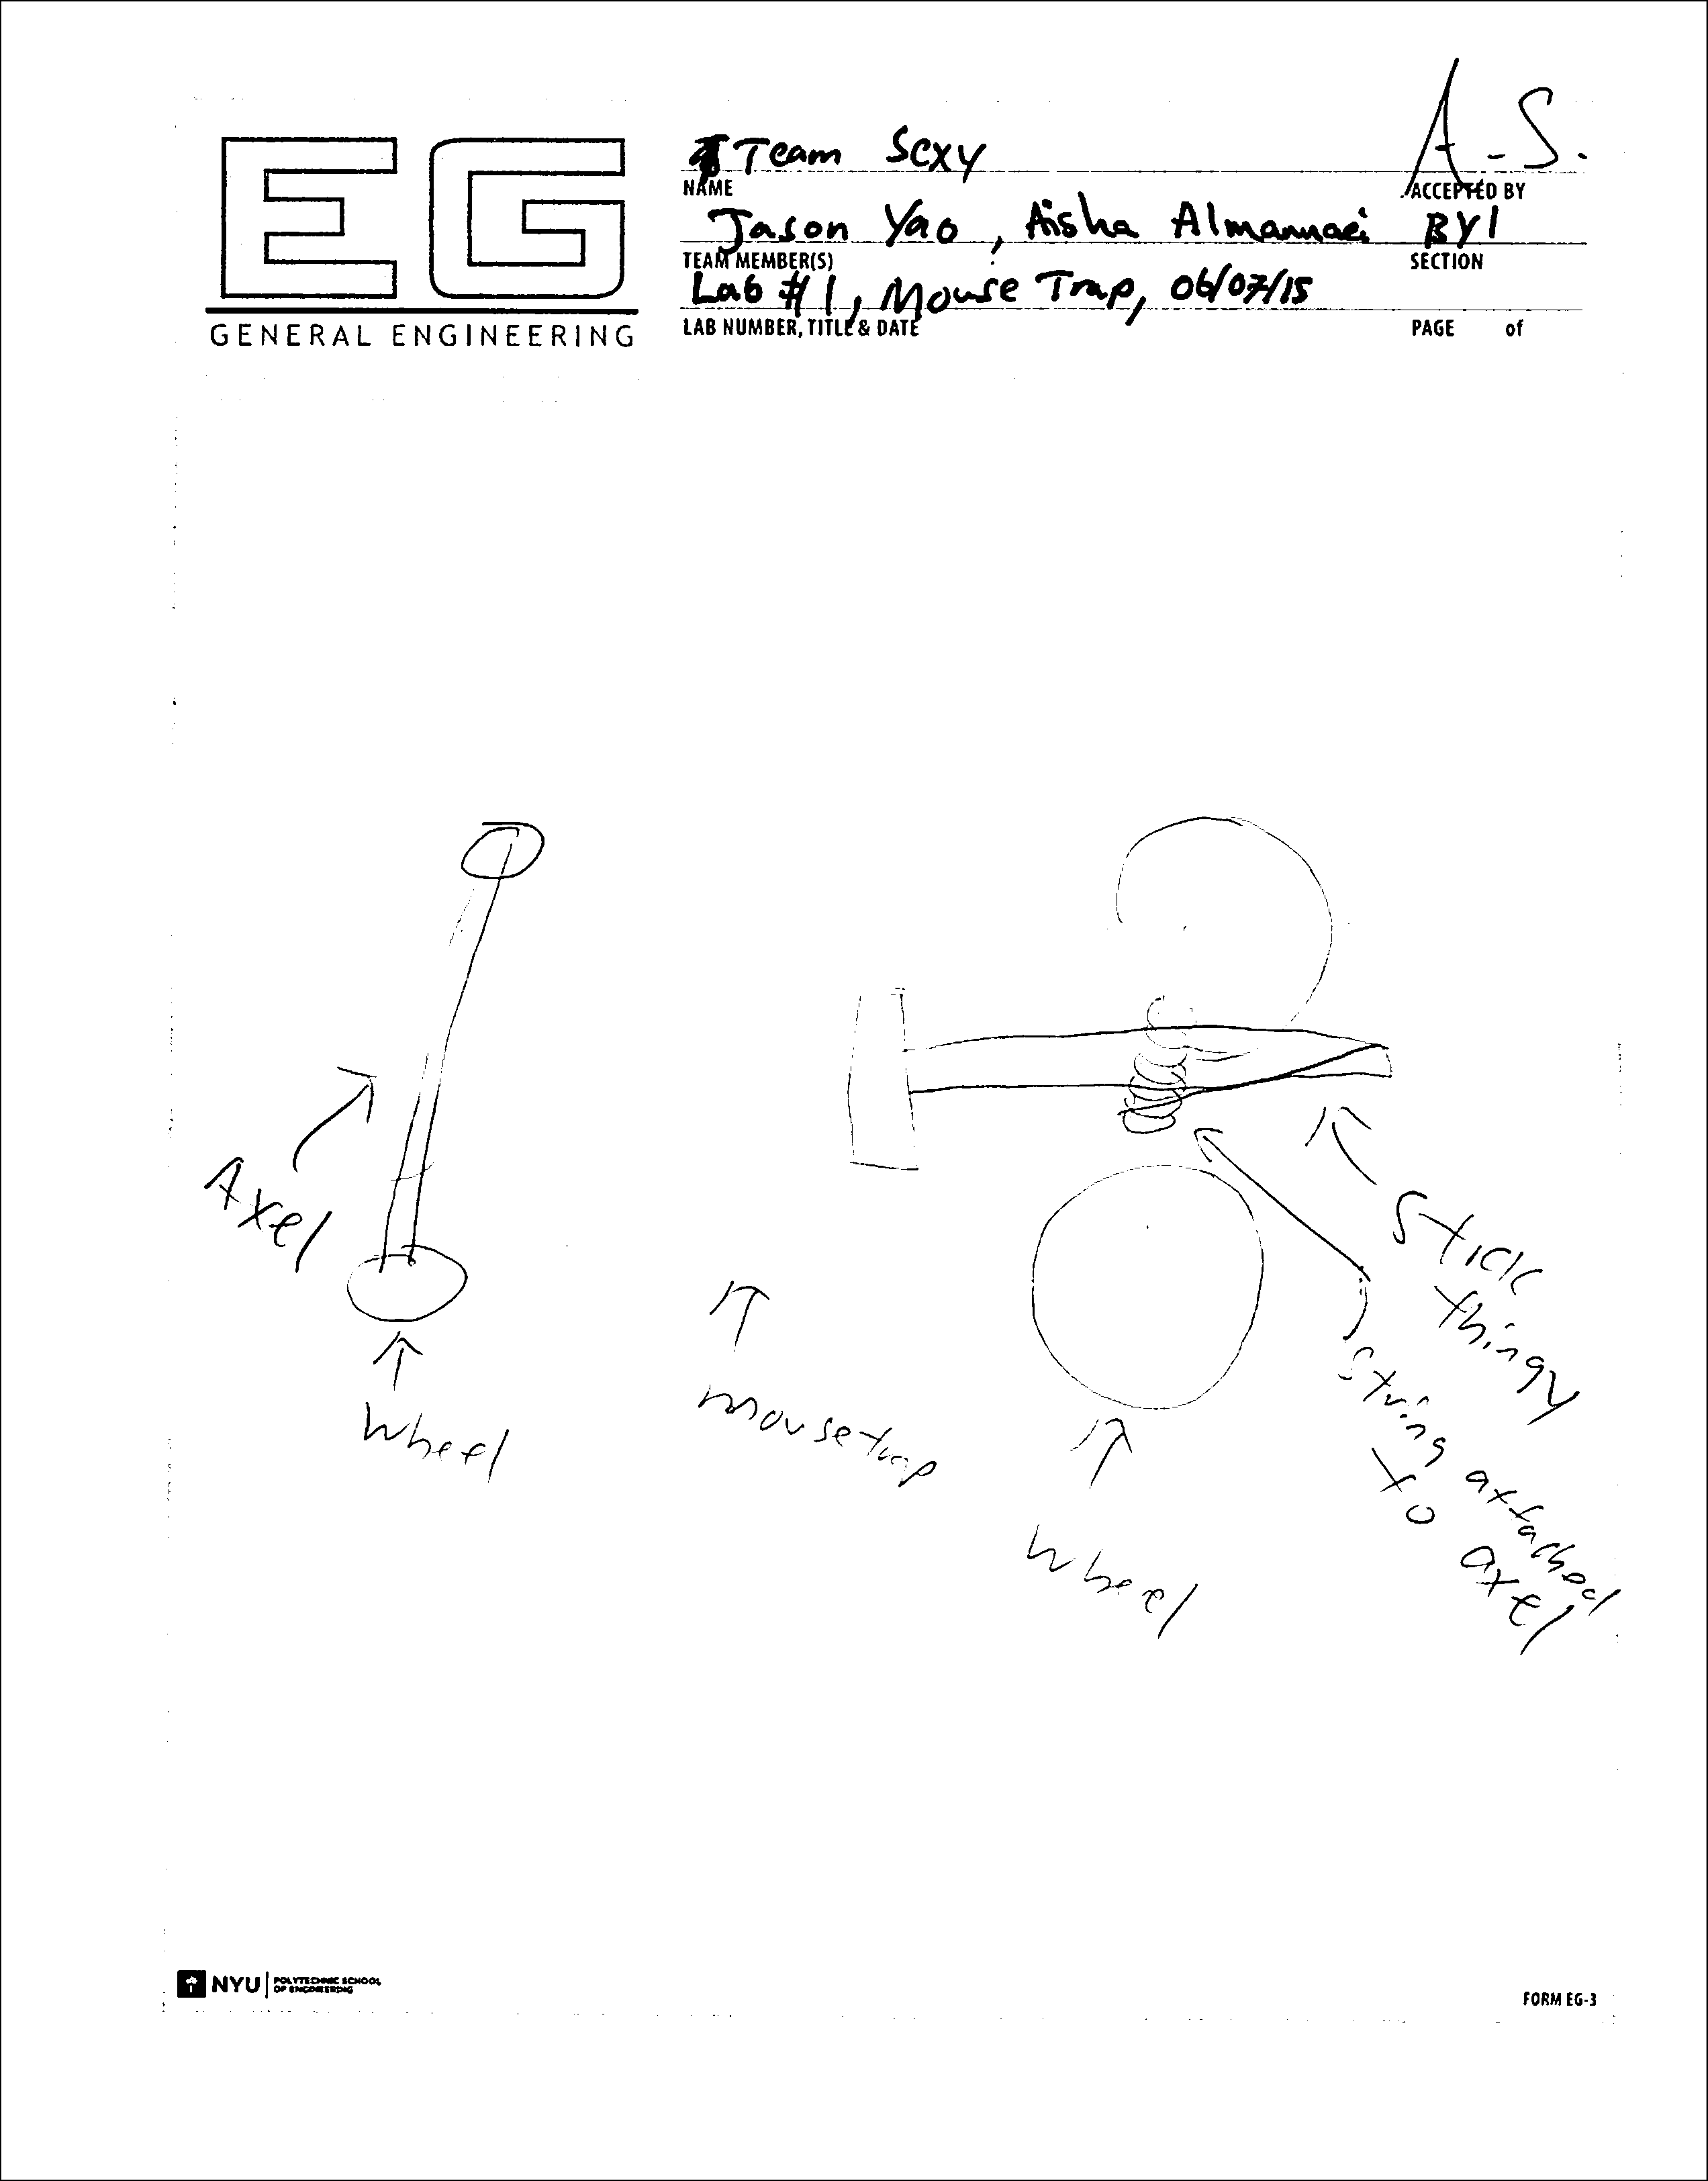 EG
GENERAL ENGINEERING
Team Sexy
NAME
A.S.
ACCEPTED BY
Jason Yao, Aisha Almannaei
TEAM MEMBER(S)
BY1
SECTION
Lab #1, Mouse Trap, 06/07/15
LAB NUMBER, TITLE & DATE
PAGE of
Axel
Wheel
mousetrap
Wheel
Stick
thingy
String attached
to axel
NYU
POLYTECHNIC SCHOOL
OF ENGINEERING
FORM EG-3